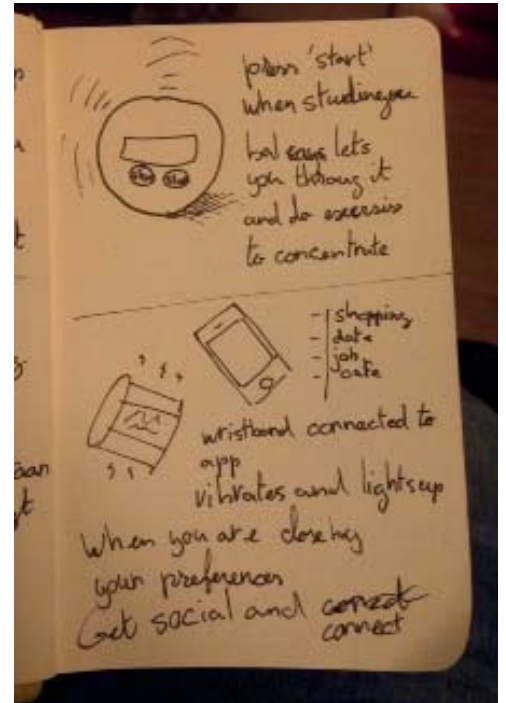 press 'start'
when studing
bal lets
you throug it
and do exersise
to concentrate
start stop
- shopping
- date
- job
- cafe
wristband connected to
app
vibrates and lights up
When you are close by
your preferences
Get social and
connect